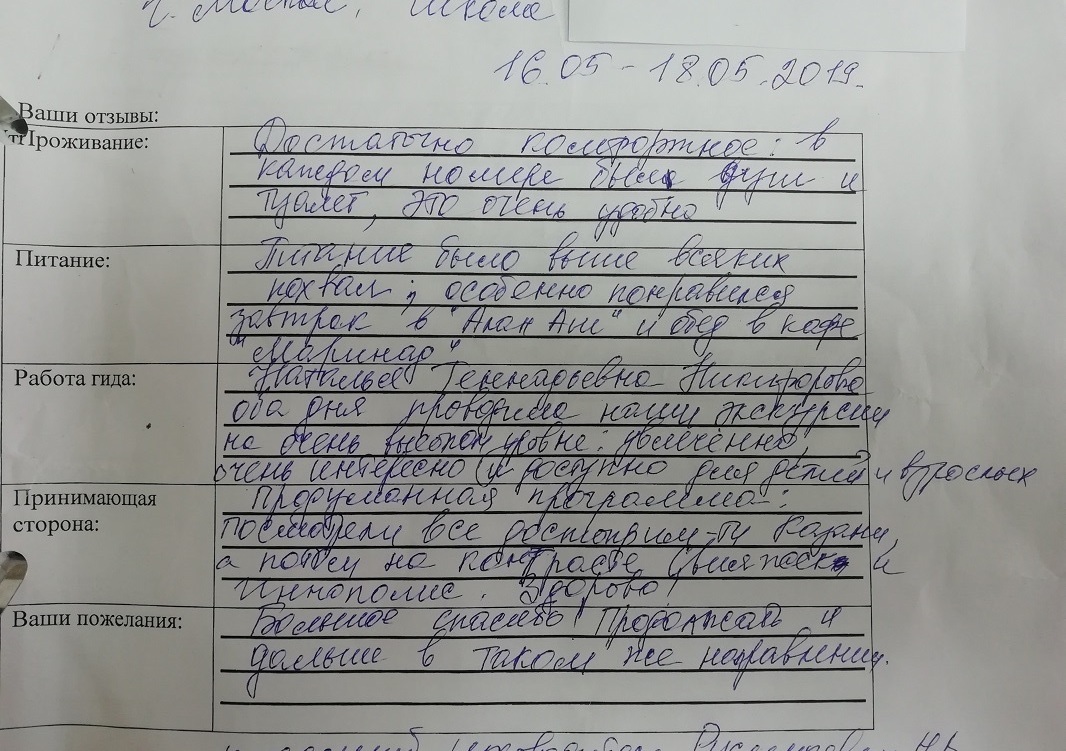 г. Москва, Школа
16.05 - 18.05.2019.
Ваши отзывы:
Проживание:
Достаточно комфортное: в
каждом номере был душ и
туалет, это очень удобно
Питание:
Питание было выше всяких
похвал, особенно понравился
завтрак в "Алан Аш" и обед в кафе
"Маринад"
Работа гида:
Наталья Геннадьевна Никифорова
оба дня проводила наши экскурсии
на очень высоком уровне: увлечённо,
очень интересно и доступно для детей и взрослых
Принимающая
сторона:
Продуманная программа:
посмотрели все достоприм-ти Казани,
а потом на контрасте Свияжск и
Иннополис. Здорово!
Ваши пожелания:
Большое спасибо! Продолжать и
дальше в таком же направлении.